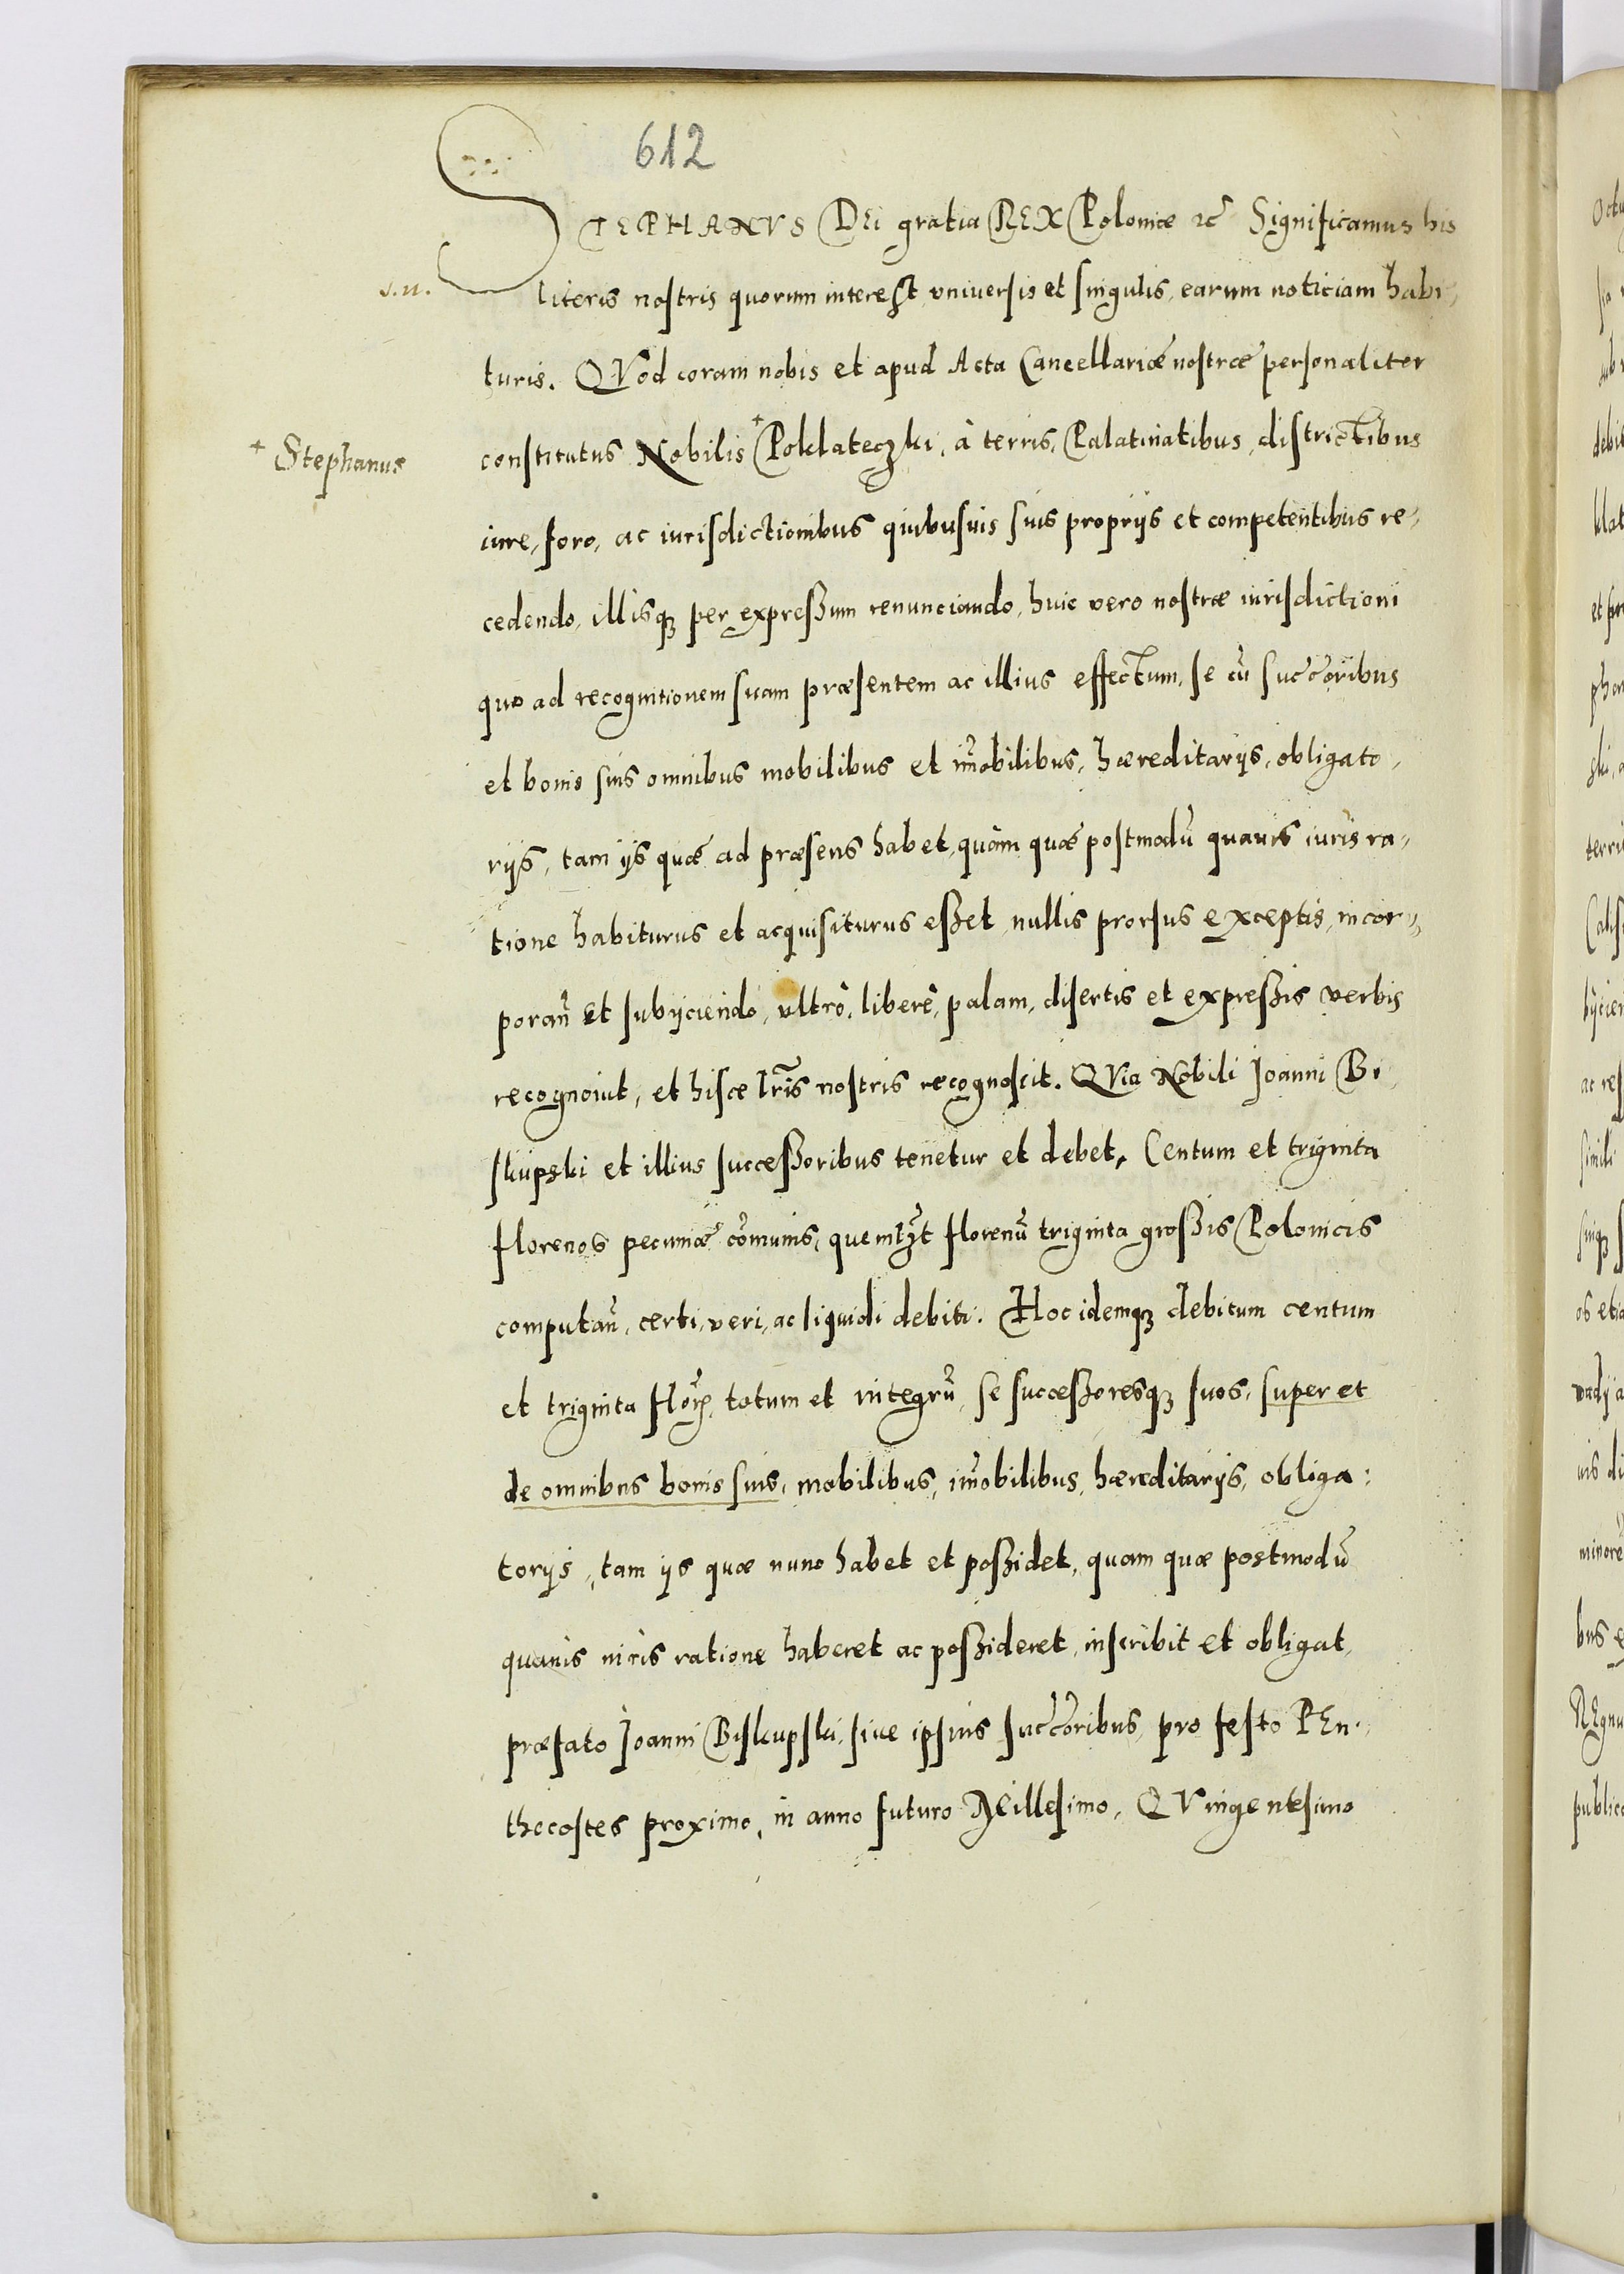 612
STEPHANVS DEi gratia REX Poloniæ ꝛc̃ Significamus his
s.n.
literis nostris quorum interest vniuersis et singulis, earum noticiam habi-
turis. QVod coram nobis et apud Acta Cancellariæ nostræ personaliter
+ Stephanus
constitutus Nobilis + Poklateczki, à terris, Palatinatibus, districtibus
iure, foro, ac iurisdictionibus quibusuis suis proprijs et competentibus re-
cedendo, illisqꝫ per expressum renunciando, huic vero nostræ iurisdictioni
quo ad recognitionem suam præsentem ac illius effectum, se cũ succ̃oribus
et bonis suis omnibus mobilibus et im̃obilibus, hæreditarijs, obligato-
rijs, tam ijs quæ ad præsens habet, quàm quæ postmodũ quauis iuris ra-
tione habiturus et acquisiturus esset, nullis prorsus exceptis, incor-
poran̄ et subijciendo, vltrò, liberè, palam, disertis et expressis verbis
recognouit, et hisce lr̃is nostris recognoscit. QVia Nobili Joanni Bi-
skupski et illius successoribus tenetur et debet, Centum et triginta
florenos pecuniæ com̃unis, quemlꝫt florenũ triginta grossis Polonicis
computan̄, certi, veri, ac liquidi debiti. Hoc idemqꝫ debitum centum
et triginta floꝝ, totum et integrũ, se successoresqꝫ suos, super et
de omnibus bonis suis, mobilibus, im̃obilibus, hæreditarijs, obliga:
torijs, tam ijs quæ nunc habet et possidet, quam quæ postmodũ
quauis iuris ratione haberet ac possideret, inscribit et obligat,
præfato Joanni Biskupski, siue ipsius succ̃oribus, pro festo PEn-
thecostes proximo, in anno futuro Millesimo, QVingentesimo